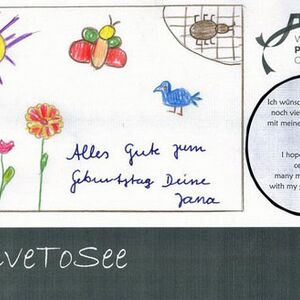 Alles Gute zum
Geburtstag Deine
Jana
Ich wünsch
noch vie
mit meine
I hop
ce
many m
with my
W
P
C
veToSee